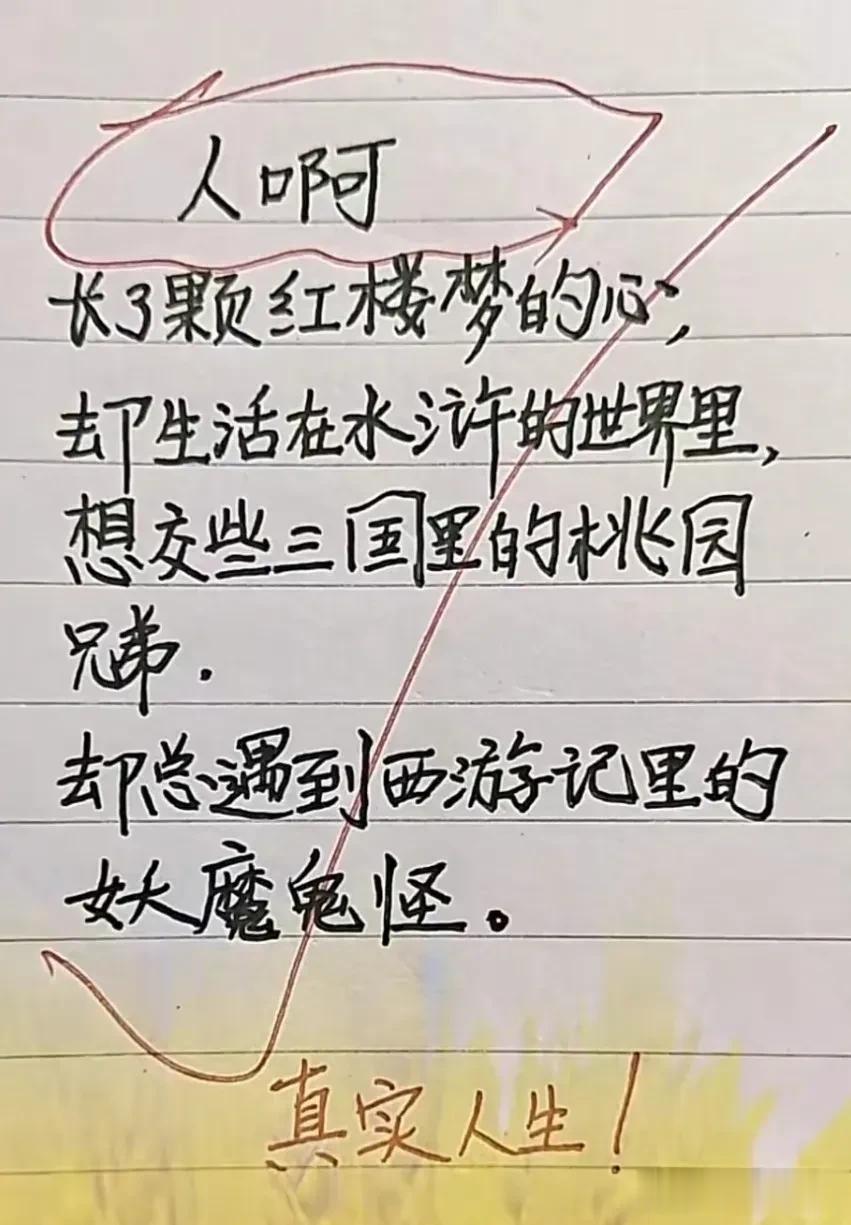 人啊
长了颗红楼梦的心,
却生活在水浒的世界里,
想交些三国里的桃园
兄弟.
却总遇到西游记里的
妖魔鬼怪。
真实人生!